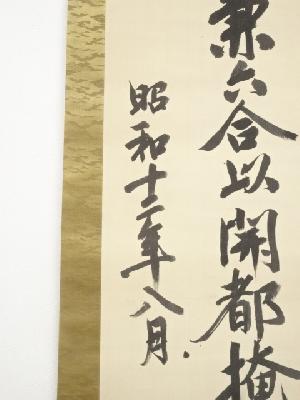 兼六合以開都掩
昭和十二年八月